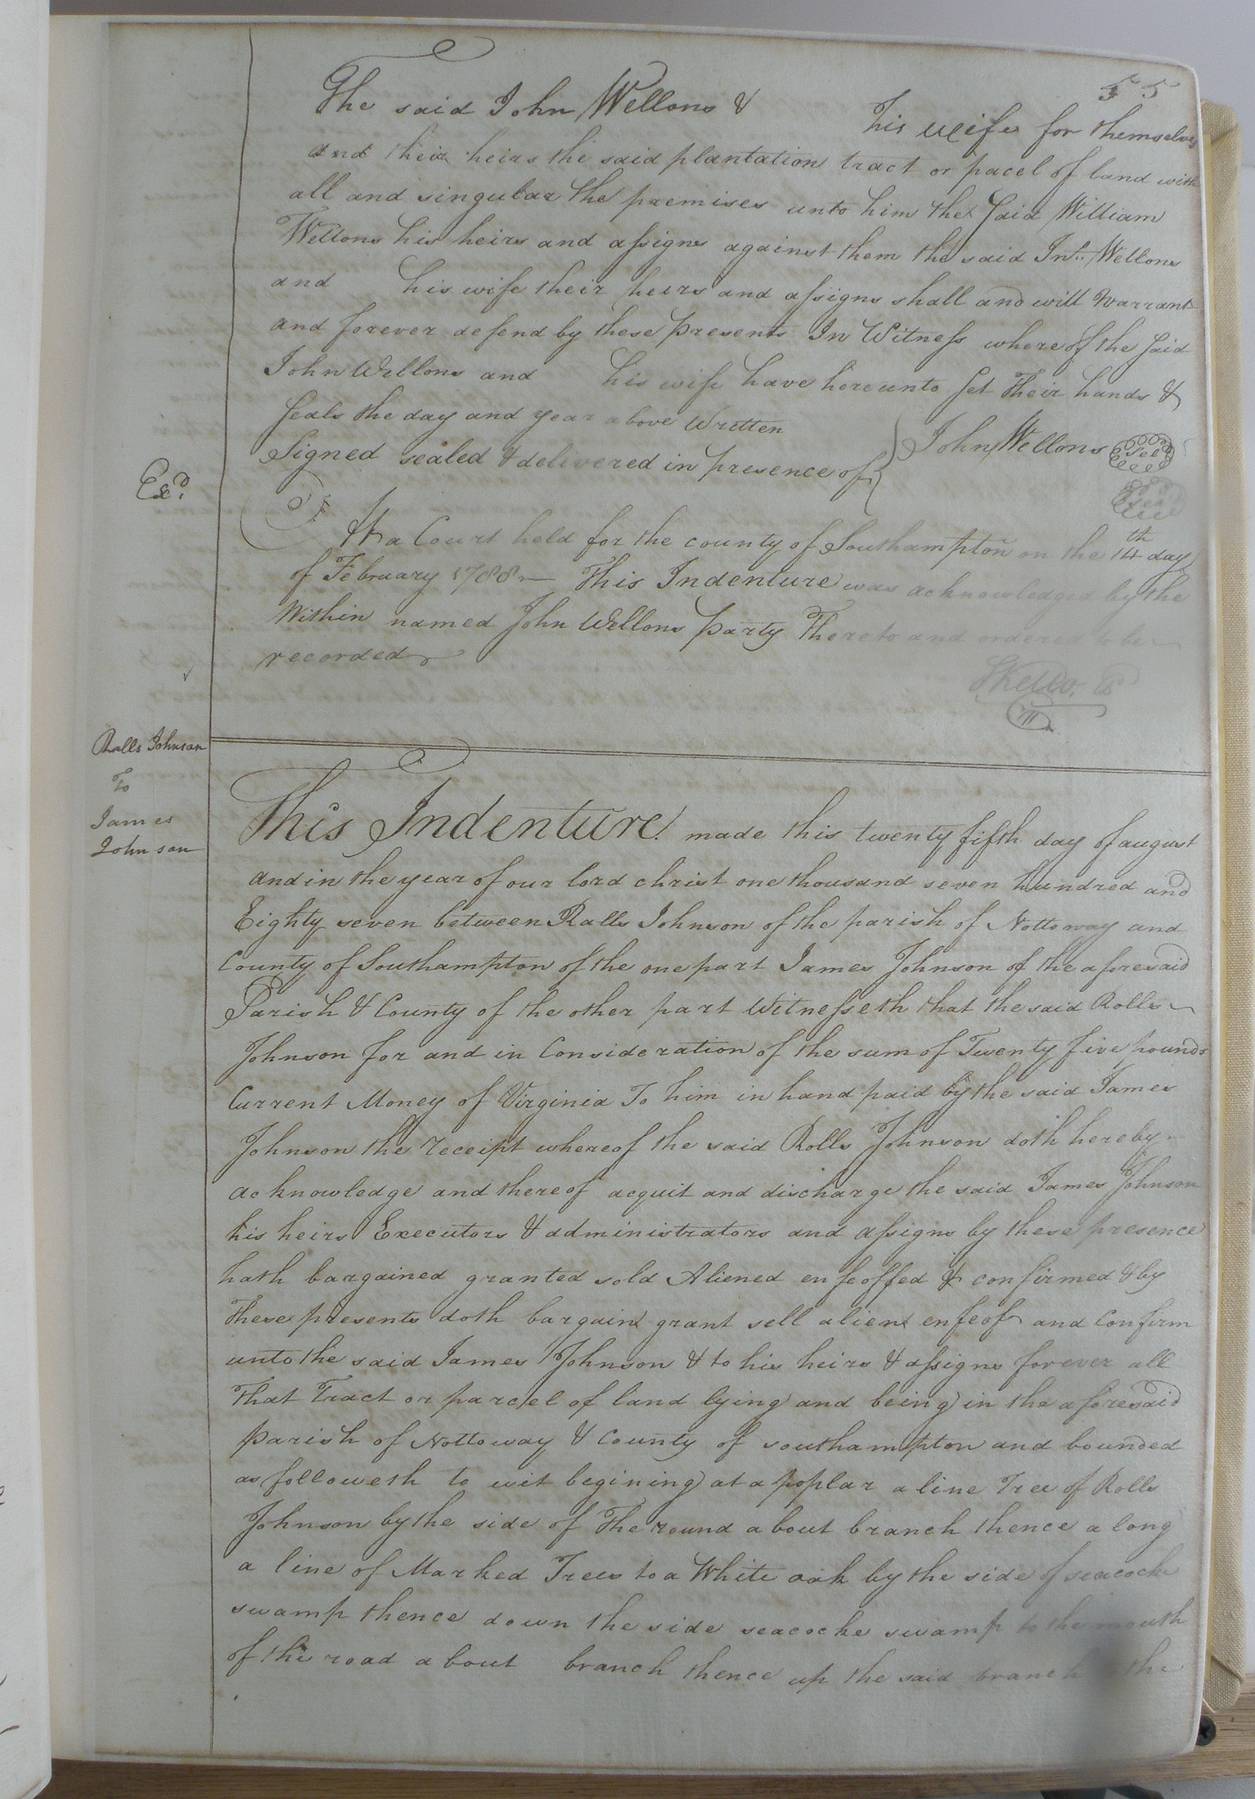 55
The said John Wellons & his wife for themselves
and their heirs the said plantation tract or pacel of land with
all and singular the premises unto him the said William
Wellons his heirs and assigns against them the said Jnº. Wellons
and his wife their heirs and assigns shall and will Warrant
and forever defend by these presents In Witness whereof the said
John Wellons and his wife have hereunto set their hands &
seals the day and year above written
Signed sealed & delivered in presence of
John Wellons Seal
Seal
Exd.
At a Court held for the county of Southampton on the 14th day
of February 1788 - This Indenture was acknowledged by the
Within named John Wellons party Thereto and ordered to be
recorded
Ralls Johnson
To
James
Johnson
This Indenture made this twenty fifth day of august
and in the year of our lord christ one thousand seven hundred and
Eighty seven between Ralls Johnson of the parish of Nottoway and
County of Southampton of the one part James Johnson of the aforesaid
Parish & County of the other part Witnesseth that the said Rolls
Johnson for and in Consideration of the sum of Twenty five pounds
Current Money of Virginia To him in hand paid by the said James
Johnson the receipt whereof the said Rolls Johnson doth hereby
acknowledge and thereof acquit and discharge the said James Johnson
his heirs Executors & administrators and assigns by these presence
hath bargained granted sold Aliened enfeoffed & confirmed & by
these presents doth bargain grant sell alien enfeof and Confirm
unto the said James Johnson & to his heirs & assigns forever all
that Tract or parcel of land lying and being in the aforesaid
parish of Nottoway & County of southampton and bounded
as followeth to wit begining at a poplar a line Tree of Rolls
Johnson by the side of The round about branch thence along
a line of Marked Trees to a White oak by the side of seacocke
swamp thence down the side seacocke swamp to the mouth
of the road about branch thence up the said branch the